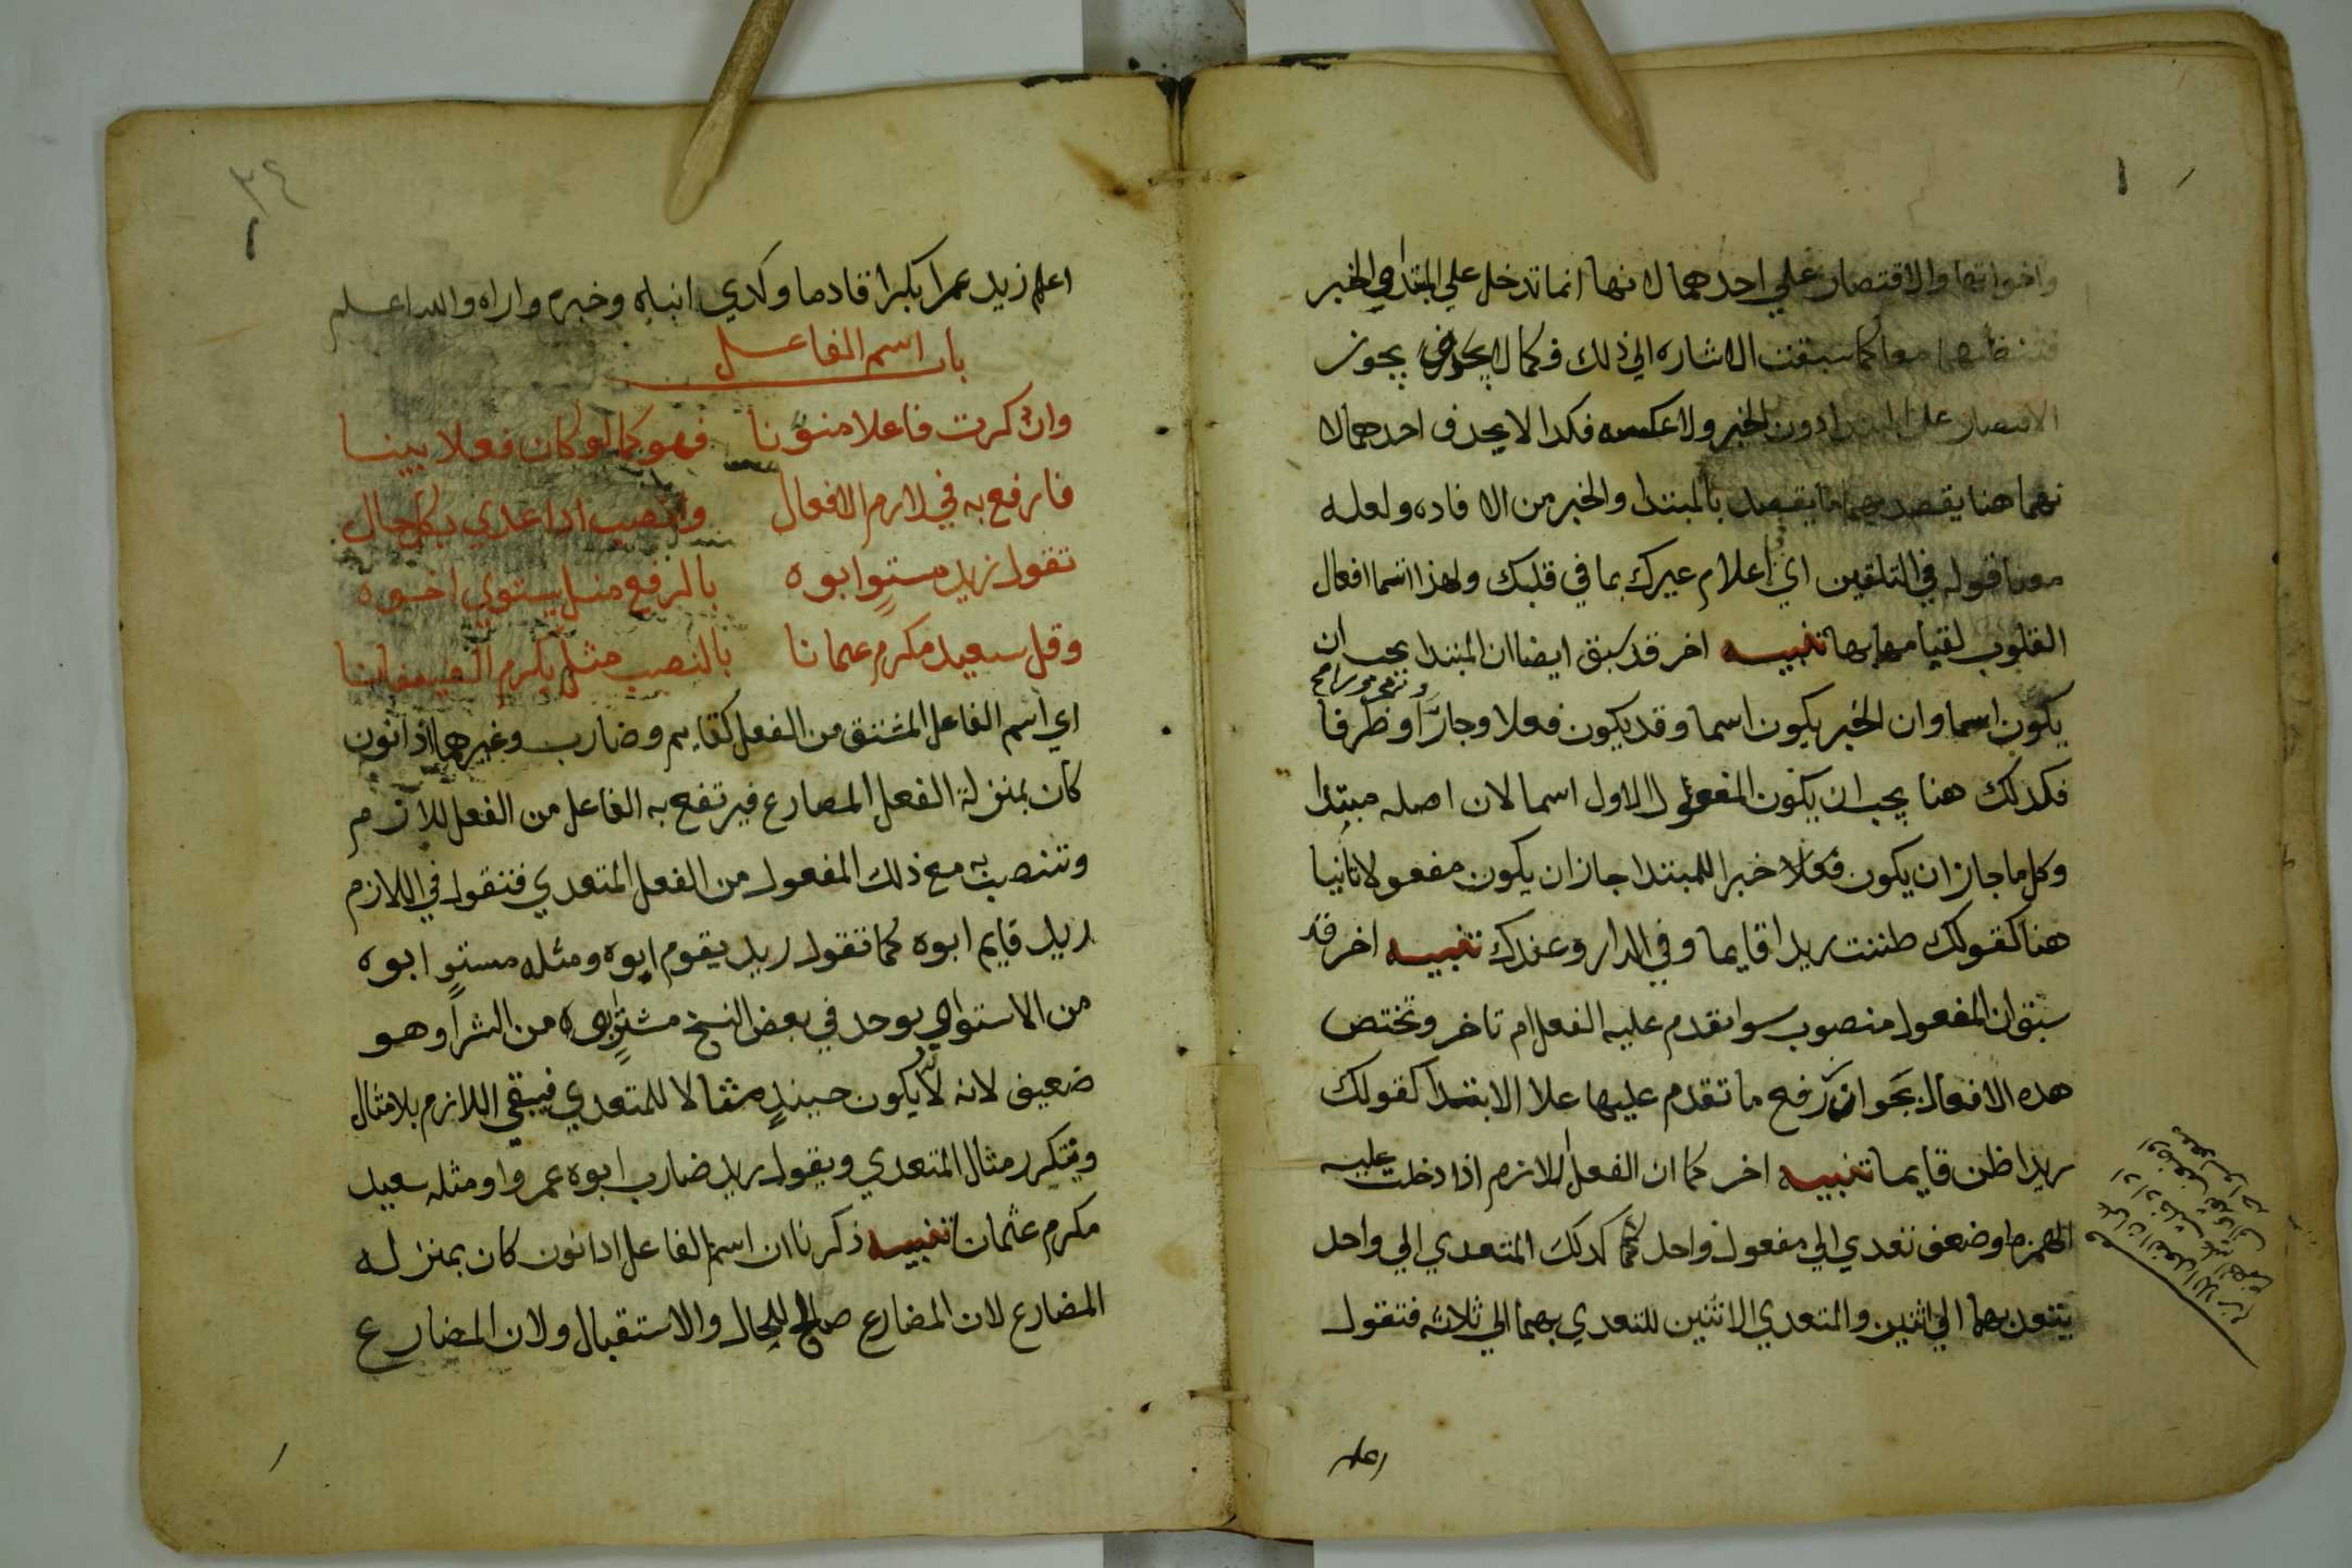 واخواتها والاقتصار علي احدهما لانها انما تدخل علي المبتدا والخبر
معا كما سبقت الاشاره الي ذلك فكما لا يجوز
الاقتصار علي المبتدا دون الخبر ولا عكسه فكدا لا يحدف احدهما لا
نهما هنا يقصد بهما ما يقصد بالمبتدا والخبر من الافاده ولعله
قوله في التلقين اي اعلام غيرك بما في قلبك ولهذا اسما افعال
القلوب لقيامها بها تنبيه اخر قد سبق ايضا ان المبتدا يجب ان
يكون اسما وان الخبر يكون اسما وقد يكون فعلا وجارا وظرفا
فكدلك هنا يجب ان يكون المفعول الاول اسما لان اصله مبتدا
وكل ما جاز ان يكون فعلا خبرا للمبتدا جاز ان يكون مفعولا ثانيا
هنا كقولك ظننت زيدا قايما وفي الدار وعندك تنبيه اخر قد
سبق ان المفعول منصوب سوا تقدم عليه الفعل ام تاخر وتختص
هده الافعال بجواز رفع ما تقدم عليها علا الابتدا كقولك
زيدا ظن قايما تنبيه اخر كما ان الفعل اللازم اذا دخلت عليه
الهمزه او ضعف تعدي الي مفعول واحد كدلك المتعدي الي واحد
يتعدي بهما الي اثنين والمتعدي لاثنين للتعدي بهما الي ثلاثه فتقول
٣٤
اعلم زيد عمرا بكرا قادما وكدي انباه وخبره واراه والله اعلم
باب اسم الفاعل
وان ذكرت فاعلا منونا فهو كما لو كان فعلا بينا
فارفع به في لازم الافعال وانصب اذا عدي بكل حال
تقول زيد مستوٍ ابوه بالرفع مثل يستوي اخوه
وقل سعيد مكرم عثمانا بالنصب مثل يكرم الضيفانا
اي اسم الفاعل المشتق من الفعل كقايم وضارب وغيرهما اذا نون
كان بمنزلة الفعل المضارع فيرتفع به الفاعل من الفعل اللازم
وتنصب به مع ذلك المفعول من الفعل المتعدي فتقول في اللازم
زيد قايم ابوه كما تقول زيد يقوم ابوه ومثله مستوٍ ابوه
من الاستوا ويوجد في بعض النسخ مشترٍ ابوه من الشرا وهو
ضعيف لانه لا يكون حينيدٍ مثالا للمتعدي فيبقي اللازم بلا مثال
ويتكرر مثال المتعدي ويقول زيد ضارب ابوه عمروا ومثله سعيد
مكرم عثمان تنبيه ذكرنا ان اسم الفاعل ادا نون كان بمنزله
المضارع لان المضارع صالح للحال والاستقبال ولان المضارع